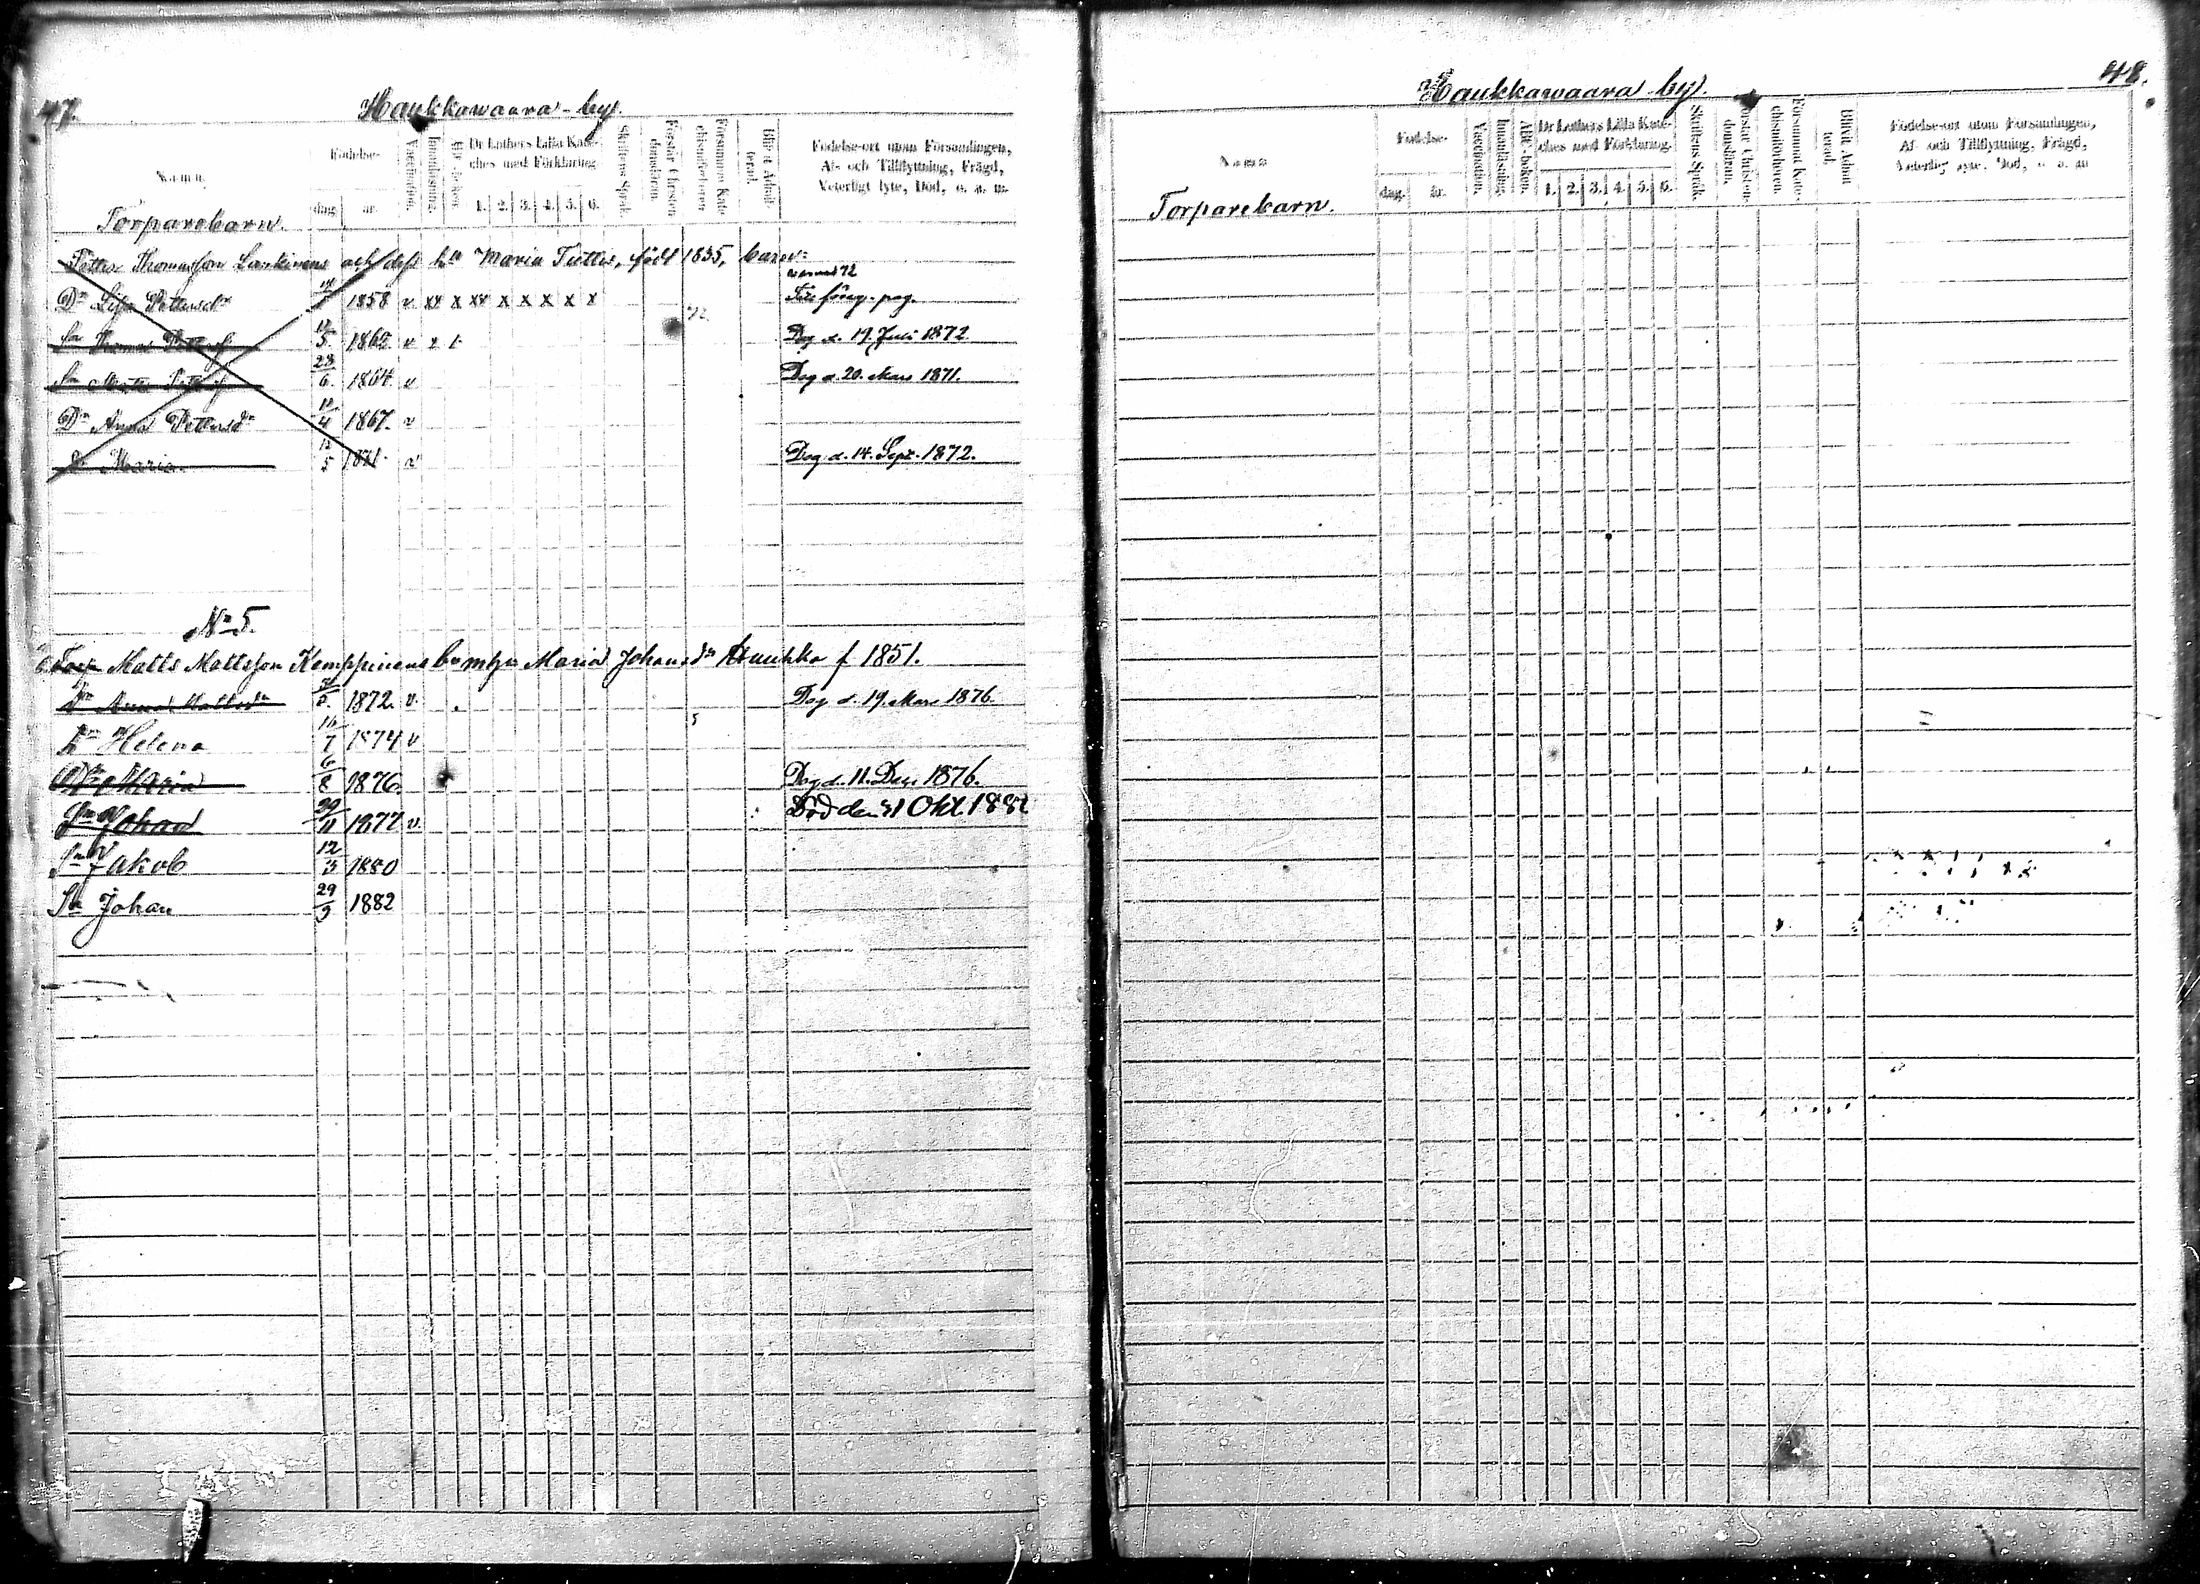 47.
Haukkawaara - by.
Namn.
Födelse-
dag.
år.
Vaccination.
Innanläsning.
ABC-boken.
Dr Luthers Lilla Kate-
ches med Förklaring.
1. 2. 3. 4. 5. 6.
Skriftens Språk.
Förstår Christen-
domsläran.
Försummat Kate-
chismiförhören.
Blivit Admit-
terad.
Födelse-ort utom Församlingen,
Af- och Tillflyttning, Frägd,
Veterligt lyte, Död, o. s. m.
Torparebarn.
Petter Thomasson Laukinens och dess hu Maria Tuttu, född 1835, barn:
Dr Lisa Pettersdr 1858 v xx x xx x x x x x Se föreg. pag.
Sn Thomas 12/5 1862 v x 1 Dog d. 19 Juli 1872.
Sn Matts 23/6 1864 v Dog d. 20. Mars 1871.
Dr Anna Pettersdr 12/4 1867. v
Dr Maria 12/5 1871 v Dog d. 14. Sept. 1872.
No 5.
Torp. Matts Mattsson Kemppinens barn m hu Maria Johansdr f 1851.
Dr Anna Mattsdr 1872. v. Dog d. 19. Mars 1876.
Dr Helena 16/7 1874 v
Dr Maria 6/8 1876 Dog d. 11. Dec. 1876.
Sn Johan 29/11 1877 v. Död den 31 Okt. 1881
Sn Jakob 12/3 1880
Sn Johan 29/9 1882
48.
Haukkawaara by.
Namn
Födelse-
dag.
år.
Vaccination.
Innanläsning.
ABC-boken.
Dr Luthers Lilla Kate-
ches med Förklaring.
1. 2. 3. 4. 5. 6.
Skriftens Språk.
Förstår Christen-
domsläran.
Försummat Kate-
chismiförhören.
Blivit Admit-
terad.
Födelse-ort utom Församlingen,
Af- och Tillflyttning, Frägd,
Veterligt lyte, Död, o. s. m
Torparebarn.